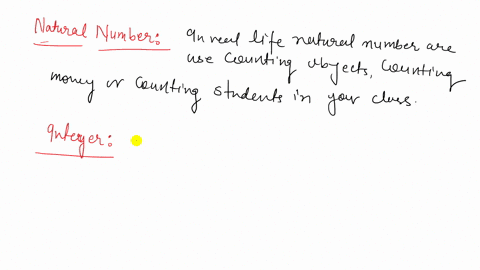 Natural Number: In real life natural number are
use counting objects, counting
money or counting students in your class.
Integer: